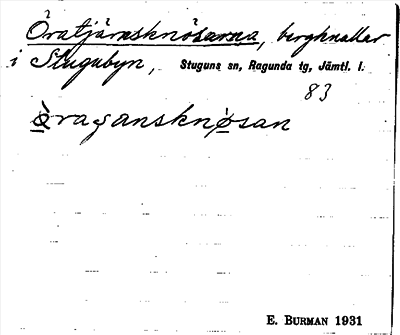 Öratjärnsknösarna, bergknallar
i Stugubyn, Stuguns sn, Ragunda tg, Jämtl. l.
83
ǿragansknøsan
E. BURMAN 1931